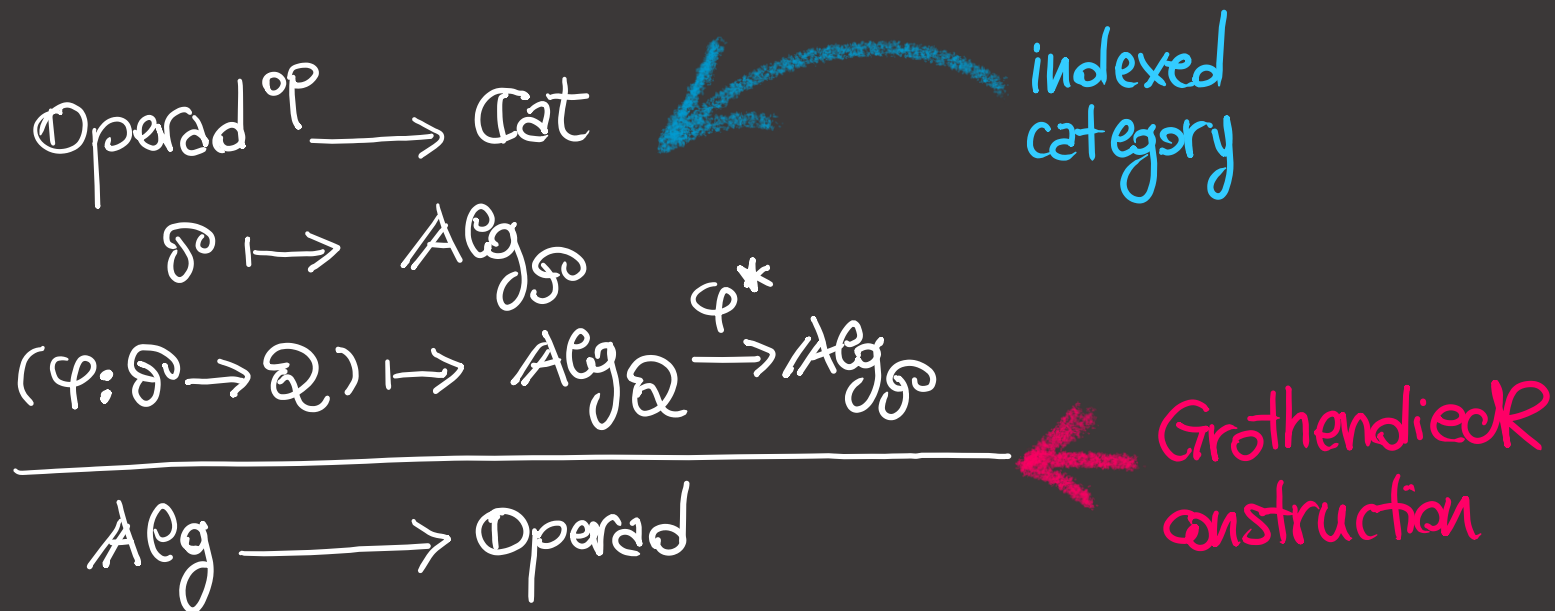 Operad^op → Cat
indexed
category
𝒫 ↦ Alg_𝒫
(φ: 𝒫 → 𝒬) ↦ Alg_𝒬 \xrightarrow{φ*} Alg_𝒫
Grothendieck
construction
Alg → Operad